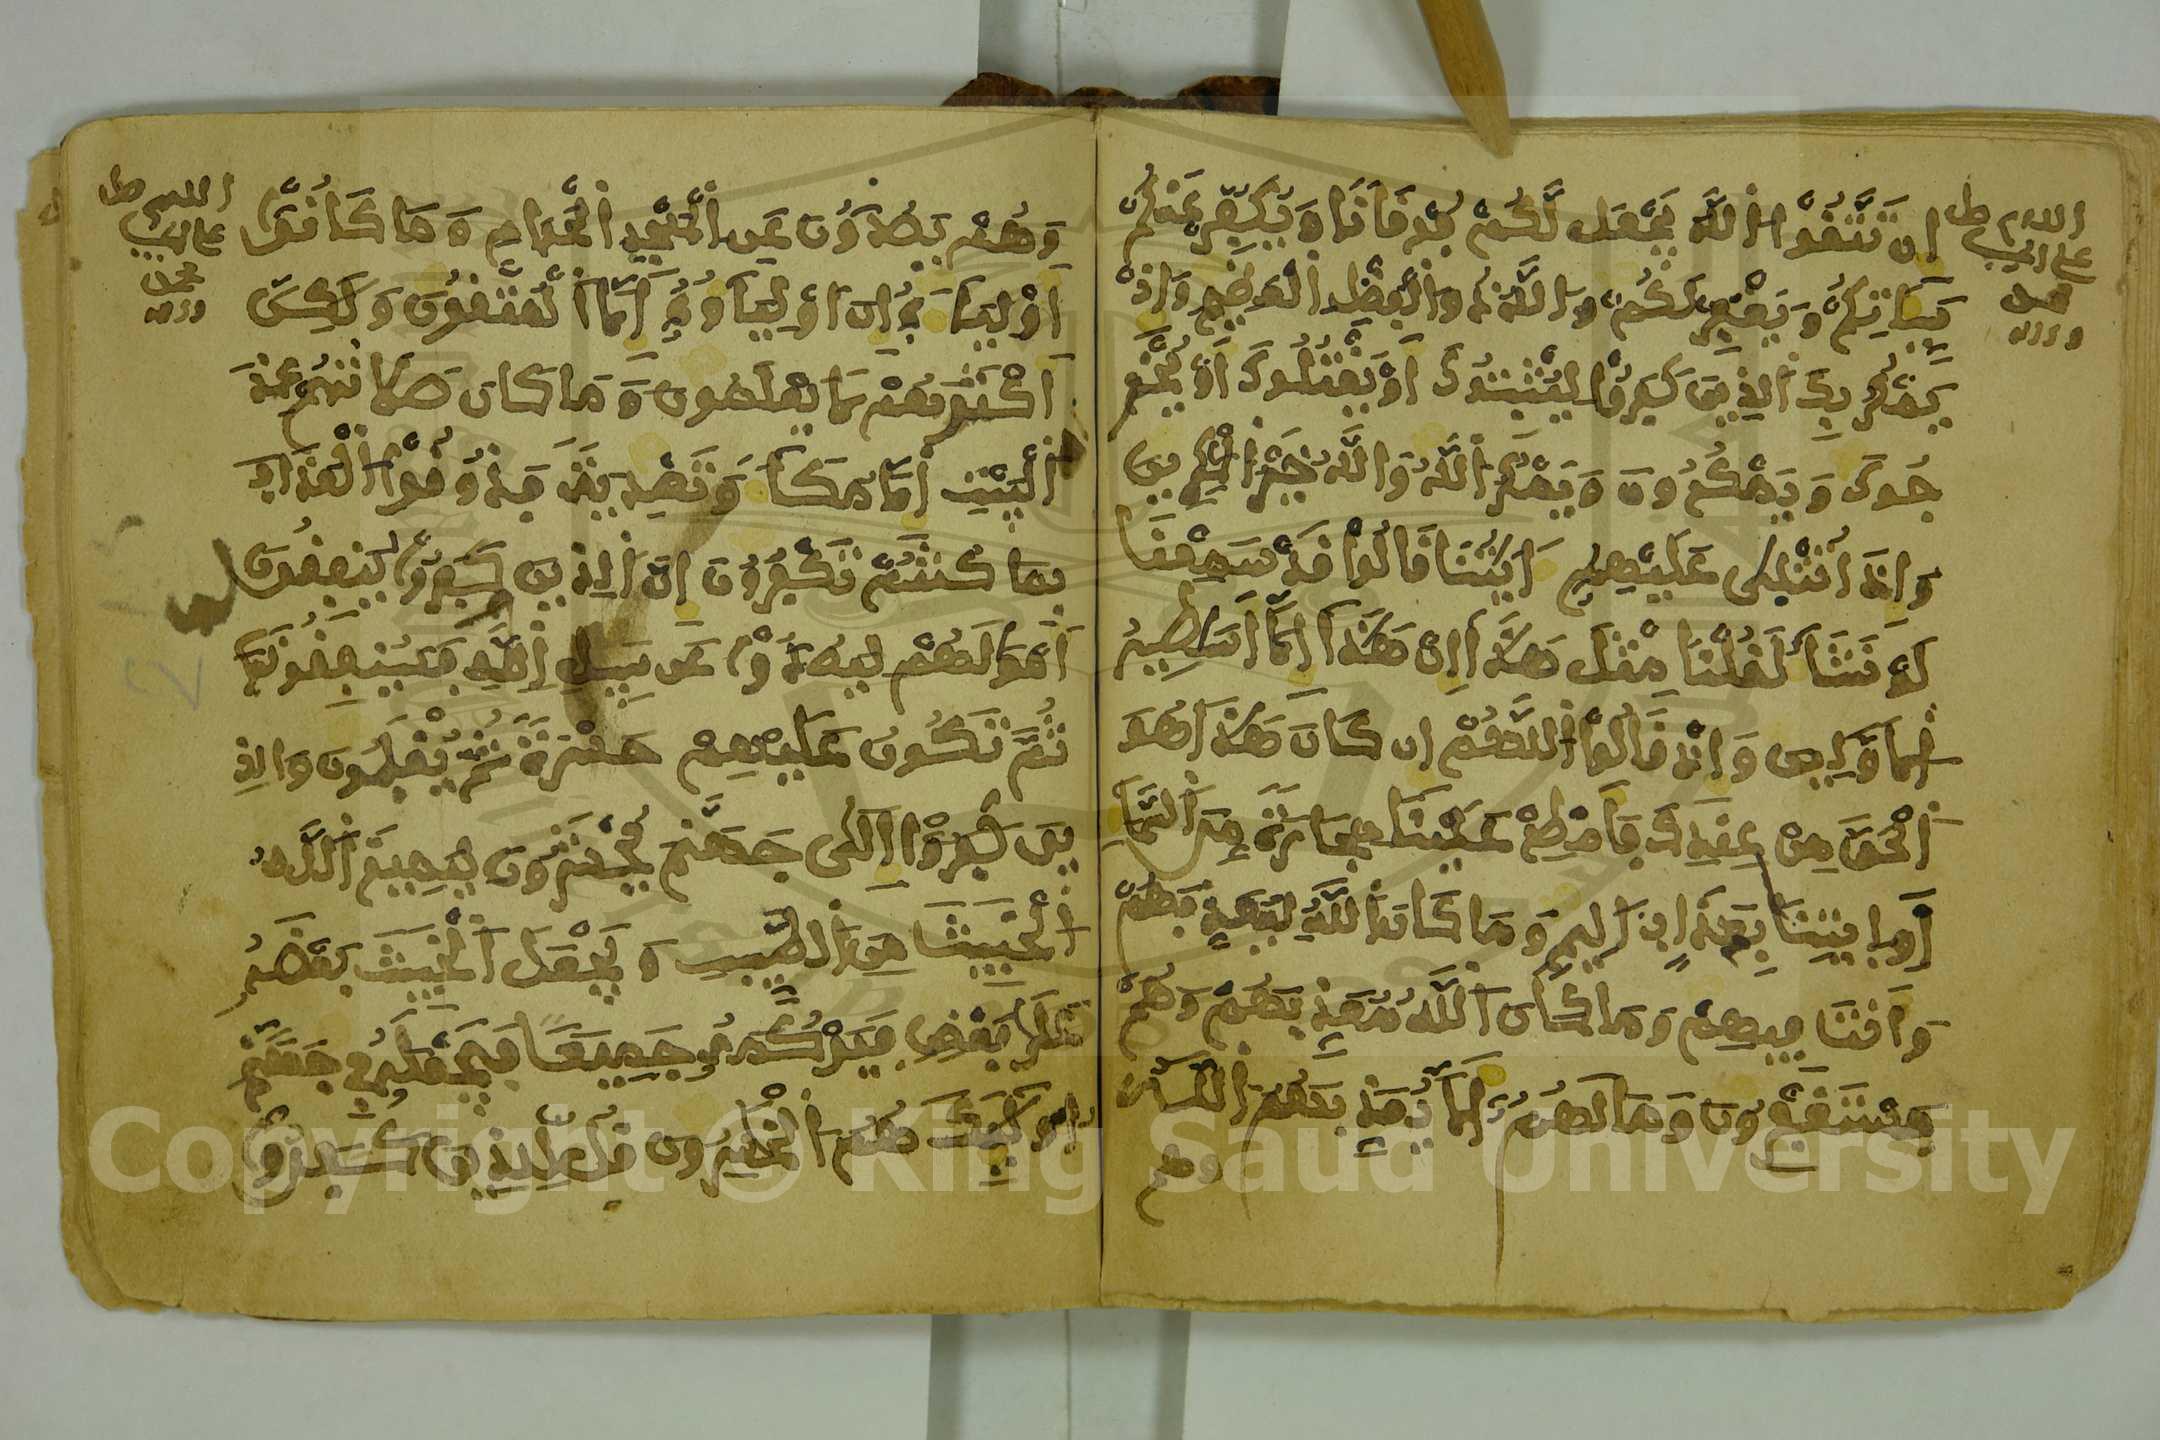 اللهم صل
على النبي
محمد
وءاله
ان تتقوا الله يجعل لكم فرقانا ويكفر عنكم
سياتكم ويغفر لكم والله ذو الفضل العظيم واذ
يمكر بك الذين كفروا ليثبتوك او يقتلوك او يخر
جوك ويمكرون ويمكر الله والله خير المكرين
واذا تتلى عليهم ءايتنا قالوا قد سمعنا
لو نشا لقلنا مثل هذا ان هذا الا اساطير
الاولين واذ قالوا اللهم ان كان هذا هو
الحق من عندك فامطر علينا حجارة من السما
او ايتنا بعذاب اليم وما كان الله ليعذبهم
وانت فيهم وما كان الله معذبهم وهم
يستغفرون وما لهم الا يعذبهم الله
وهم
اللهم صل
على النبي
محمد
وءاله
وهم يصدون عن المسجد الحرام وما كانوا
اوليا ه ان اولياوه الا المتقون ولكن
اكثرهم لا يعلمون وما كان صلاتهم عند
البيت الا مكا وتصدية فذوقوا العذاب
بما كنتم تكفرون ان الذين كفروا ينفقون
اموالهم ليصدوا عن سبيل الله فسينفقونها
ثم تكون عليهم حسرة ثم يغلبون والذ
ين كفروا الى جهنم يحشرون ليميز الله
الخبيث من الطيب ويجعل الخبيث بعضه
على بعض فيركمه جميعا فيجعله في جهنم
اوليك هم الخسرون قل للذين كفروا
Copyright © King Saud University